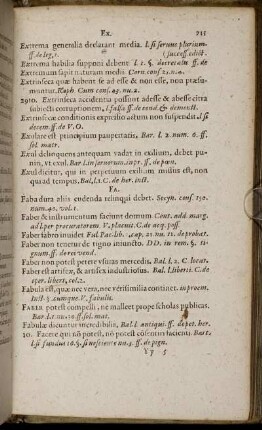 Ex. 711
Extrema generalia declarant media. l. si servus plurium.
ff. de leg. 1. (succeff. edict.
Extrema habilia supponi debent l. 1. §. decretum ff. de
Extremum sapit naturam medii Corn. conf. 25. n. 4.
Extrinseca quæ habent se ad esse & non esse, non præsu-
muntur. Raph. Cum. conf. 43. nu. 2.
2910. Extrinseca accidentia possunt adesse & abesse citra
subiecti corruptionem, l. falsa ff. de cond. & demonst.
Extrinsecæ conditionis expressio actum non suspendit l. si
decem. ff. de V. O.
Exulare est principium paupertatis. Bar. l. 2. num. 6. ff.
sol. matr.
Exul delinquens antequam vadat in exilium, debet puni-
ri, vt exul. Bar. Lin seruorum. in pr. ff. de pœn.
Exul dicitur, qui in perpetuum exilium missus est, non
quod ad tempus. Bal. l. 1. C. de her. inst.
Fa.
Faba dura aliis cudenda relinqui debet. Socyn. conf. 130.
num. 40. vol. 1.
Faber & instrumentum faciunt domum Cont. add. marg.
ad l. per procuratorem V. placuit. C. de arq. poss.
Faber fabro inuidet. Ful. Pac. lib. 1. cap. 21. nu. 11. de probat.
Faber non tenetur de tigno iniuncto. DD. in rem. §. ti-
gnum. ff. de rei vend.
Faber non potest petere vsuras mercedis. Bal. l. 2. C. locat.
Faber est artifex, & artifex industriosus. Bal. l. liberti. C. de
oper. libert. col. 2.
Fabula est, quæ nec vera, nec verisimilia continet. in proem.
Inst. §. cumque. V. fabulis.
Facere potest compelli, ne malleet prope scholas publicas.
Bar.
Fabulæ dicuntur incredibilia, Bal. l. antiqui. ff. de pet. her.
20. Facere qui nō potest, nō potest cōsentire facienti. Bart.
l. si fundus 16. §. si nesciente nu. 3. ff. de pign.
Yy 5